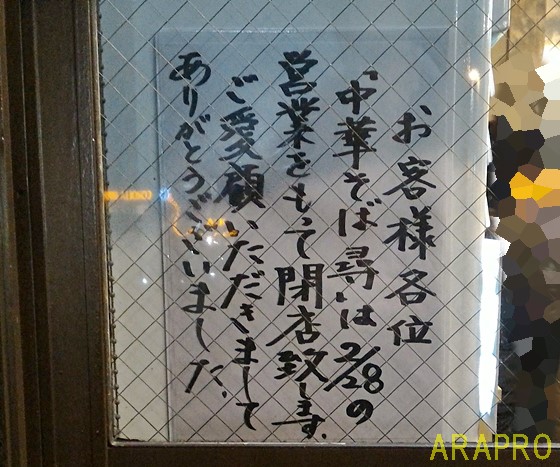 お客様各位
「中華そば 尋」は2/28の
営業をもって閉店致します。
ご愛顧いただきまして
ありがとうございました。
ARAPRO